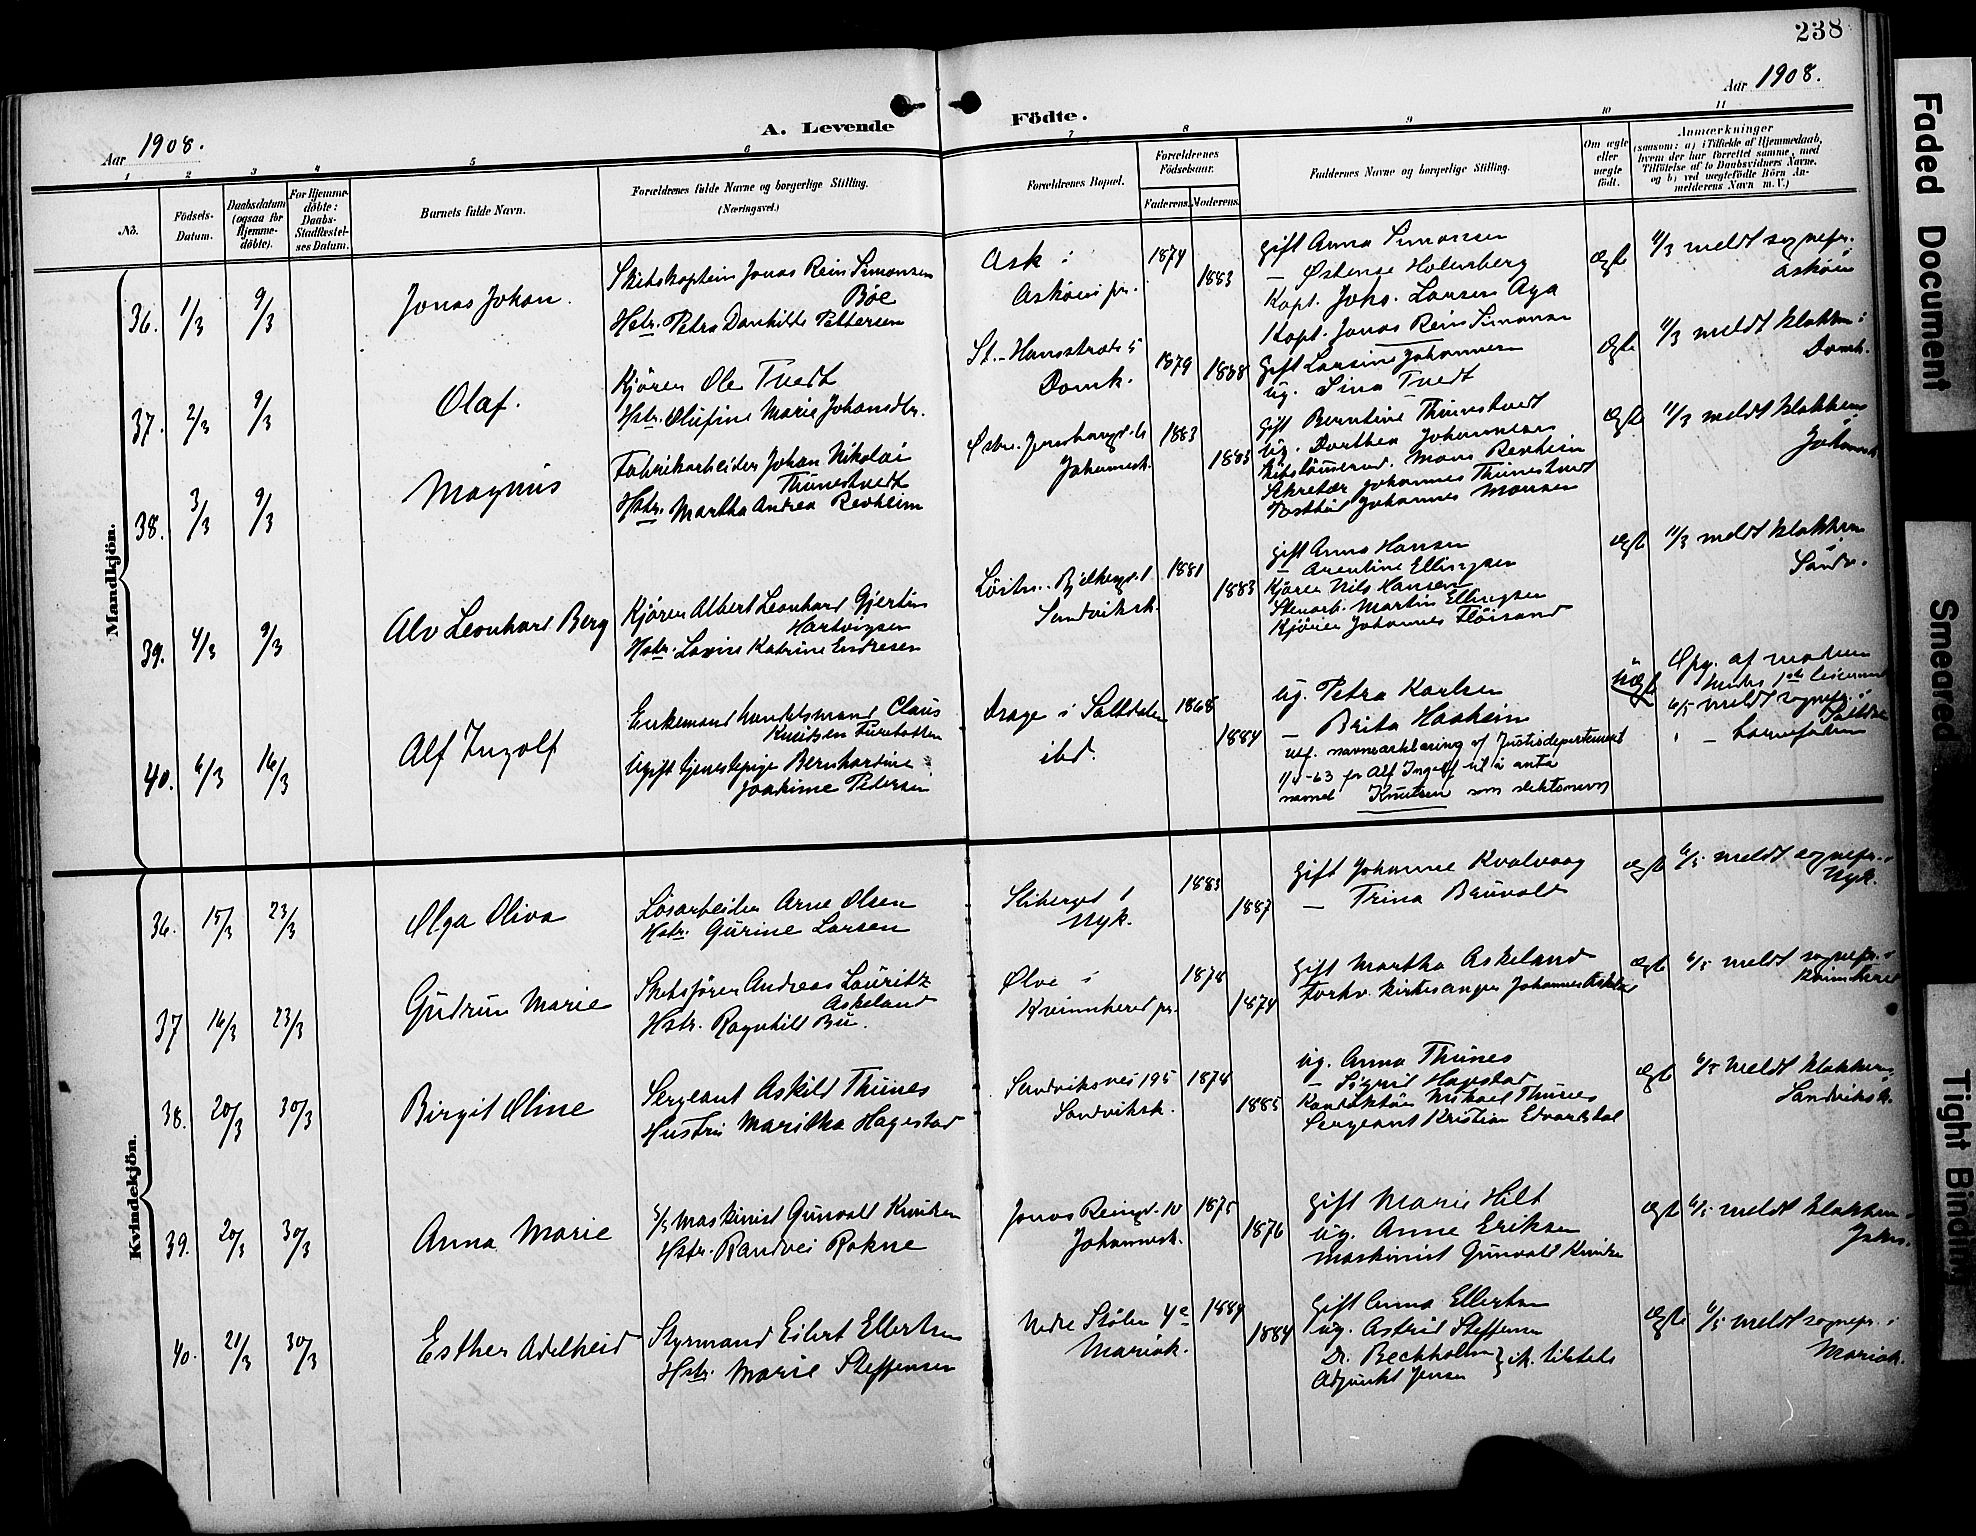 238
Aar 1908.
Aar 1908.
A. Levende Födte.
1 2 3 4 5 6 7 8 9 10 11
No.
Födsels-Datum.
Daabsdatum (ogsaa för Hjemmedöbte).
For Hjemmedöbte: Daabs-Stadfæstelses Datum.
Barnets fulde Navn.
Forældrenes fulde Navne og borgerlige Stilling.
(Næringsvei.)
Forældrenes Bopæl.
Forældrenes Födselsaar.
Faderens. Moderens.
Faddernes Navne og borgerlige Stilling.
Om ægte eller uægte födt.
Anmærkninger
(saasom: a) i Tilfælde af Hjemmedaab, hvem der har forrettet samme, med Tilföielse af to Daabsvidners Navne. og b) ved uægtefödte Börn Anmelderens Navn m. V.)
Mandkjön.
36. 1/3 9/3 Jonas Johan.
Skibskaptein Jonas Rein Simonsen
Böe
Hstr. Petra Danhilde Pettersen
Ask i
Asköens pr.
1874 1883
Gift Anna Simonsen
— Østense Holmberg
Kapt. Johs. Larsen Aga
Kapt. Jonas Rein Simonsen
Ægte
11/3 meldt sognepr.
Asköen
37. 2/3 9/3 Olaf.
Kjörer Ole Tvedt
Hstr. Olufine Marie Johansdtr.
St. Hansstræde 5
Domk.
1879 1888
Gift Larsine Johannesen
ug. Sina Tvedt
Ægte
11/3 meldt klokken i
Domk.
38. 3/3 9/3 Magnus
Fabrikarbeider Johan Nikolai
Thunestvedt
Hstr. Martha Andrea Revheim
Johannesk.
1883 1883
Gift Berntine Thunestvedt
ug. Dorthea Johannesen
Mons Revheim
Sekretær Johannes Thunestvedt
Johannes Monsen
Ægte
11/3 meldt klokken i
Johannesk.
39. 4/3 9/3 Alv Leonhard Berg
Kjörer Albert Leonhard Gjertin
Hartvigsen
Hstr. Lovise Katrine Endresen
Sandviksk.
1881 1883
Gift Anna Hansen
— Arentine Ellingsen
Kjörer Nils Hansen
Stenarb. Martin Ellingsen
Kjörer Johannes Flöisand
Ægt
11/3 meldt klokken i
Sandv.
40. 6/3 16/3 Alf Ingolf
Enkemand handelsmand Claus
Knudsen Furebotten
Ugift tjenestepige Bernhartine
Joakime Pedersen
Drage i Saltdalen
ibd.
1868 1884
ug. Petra Karlsen
— Brita Haaheim
Utf. navneerklæring af Justisdepartement
for Alf Ingolf til å anta
navnet Knutsen som slektsnavn
Uægte
Opg. af moderen
hendes 1ste leiermaal
6/5 meldt sognepr. i
Saltdal
" — barnefaderen
Kvindekjön.
36. 15/3 23/3 Olga Oliva
Lösarbeider Arne Olsen
Hstr. Gurine Larsen
Nyk.
1883 1887
Gift Johanne Kvalvaag
— Trina Bruvold
Ægte
6/5 meldt sognepr. i
Nyk.
37 16/3 23/3 Gudrun Marie
Skibsförer Andreas Lauritz
Askeland
Hstr. Ragnhild Bu.
Ølve i
Kvinnhered pr.
1878 1874
Gift Martha Askeland
Forhv. kirkesanger Johannes Askeland
Ægte
6/5 meldt sognepr. i
Kvinnhered
38. 20/3 30/3 Birgit Oline
Sergeant Askild Thunes
Hustru Maritha Hagestad
Sandviksvei 195
Sandviksk.
1874 1885
ug. Anna Thunes
— Sigrid Hagestad
Konduktör Mikael Thunes
Sergeant Kristian Edvardsdal
Ægte
6/5 meldt klokken i
Sandviksk.
39. 20/3 30/3 Anna Marie
Maskinist Gunvald Knudsen
Hstr. Randvei Rokne
Jonas Reinsgd. 10
Johannesk.
1875 1876
Gift Marie Hilt
ug. Anne Eriksen
Maskinist Gunvald Knudsen
Ægte
6/5 meldt klokken i
Johs.
40. 21/3 30/3 Esther Adelheid
Styrmand Eilert Ellertsen
Hstr. Marie Steffensen
Nedre Stölen 4c
Mariak.
1884 1884
Gift Anna Ellertsen
ug. Astrid Steffensen
Dr. Beckholm
Adjunkt Jensen } ik. tilstede
Ægte
6/5 meldt sognepr. i
Mariak.
Faded Document
Smeared
Tight Binding